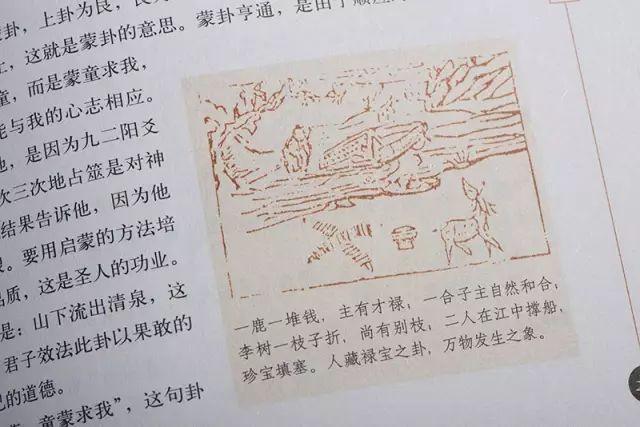 蒙卦，上卦为艮，
，这就是蒙卦的意思。蒙卦亨通，是由于顺
童，而是蒙童求我，
能与我的心志相应。
，是因为九二阳爻
次三次地占筮是对神
结果告诉他，因为他
。要用启蒙的方法培
品质，这是圣人的功业。
是：山下流出清泉，这
君子效法此卦以果敢的
己的道德。
童蒙求我”，这句卦
一鹿一堆钱，主有才禄；一合子主自然和合；
李树一枝子折，尚有别枝；二人在江中撑船，
珍宝填塞。人藏禄宝之卦，万物发生之象。